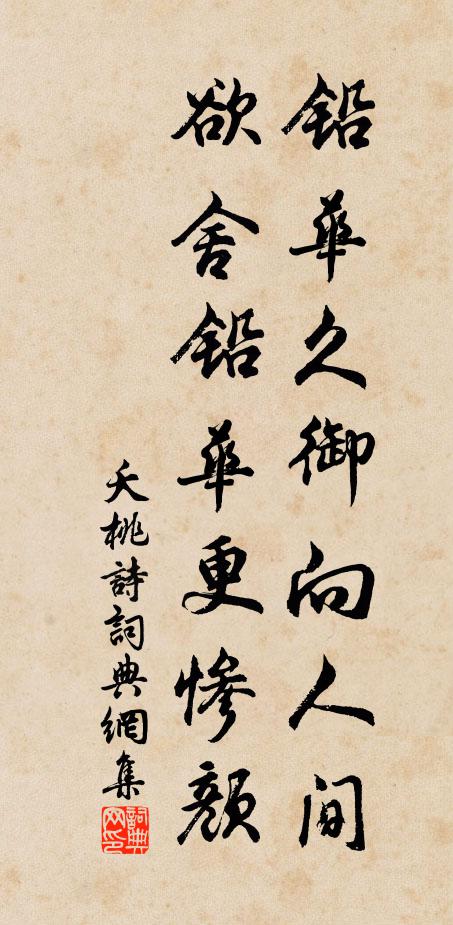 鉛華久御向人間
欲舍鉛華更慘顏
夭桃詩詞典網集
詞典網印